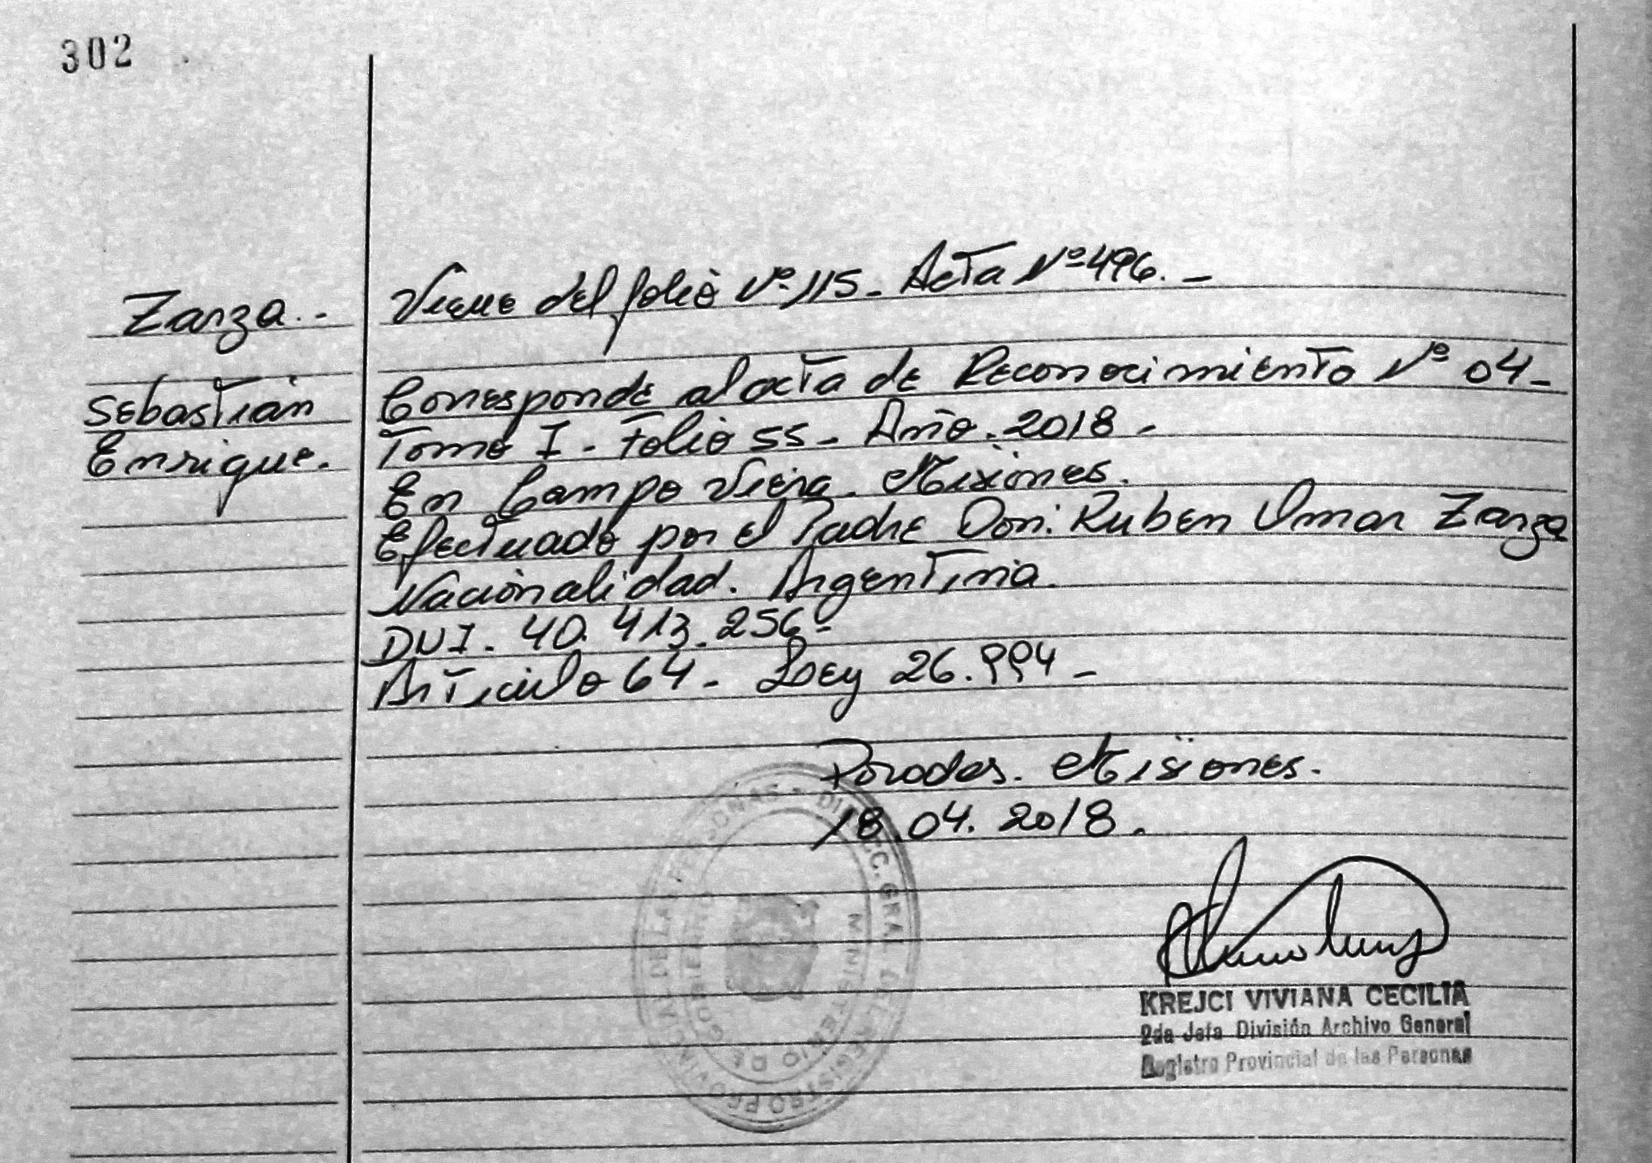 302
Zarza.-
Sebastián
Enrique.
Viene del folio Nº 115- Acta Nº 496.-
Corresponde al acta de Reconocimiento Nº 04-
Tomo I - Folio 55- Año. 2018-
En Campo Viera. Misiones.
Efectuado por el Padre Don: Ruben Omar Zarza
Nacionalidad. Argentina.
DNI. 40.413.256-
Artículo 64- Ley 26.994-
Posadas. Misiones.
18.04.2018.
DIRECC. GRAL. DEL REGISTRO PROVINCIAL DE LAS PERSONAS -
MINISTERIO DE GOBIERNO
KREJCI VIVIANA CECILIA
2da Jefa División Archivo General
Registro Provincial de las Personas